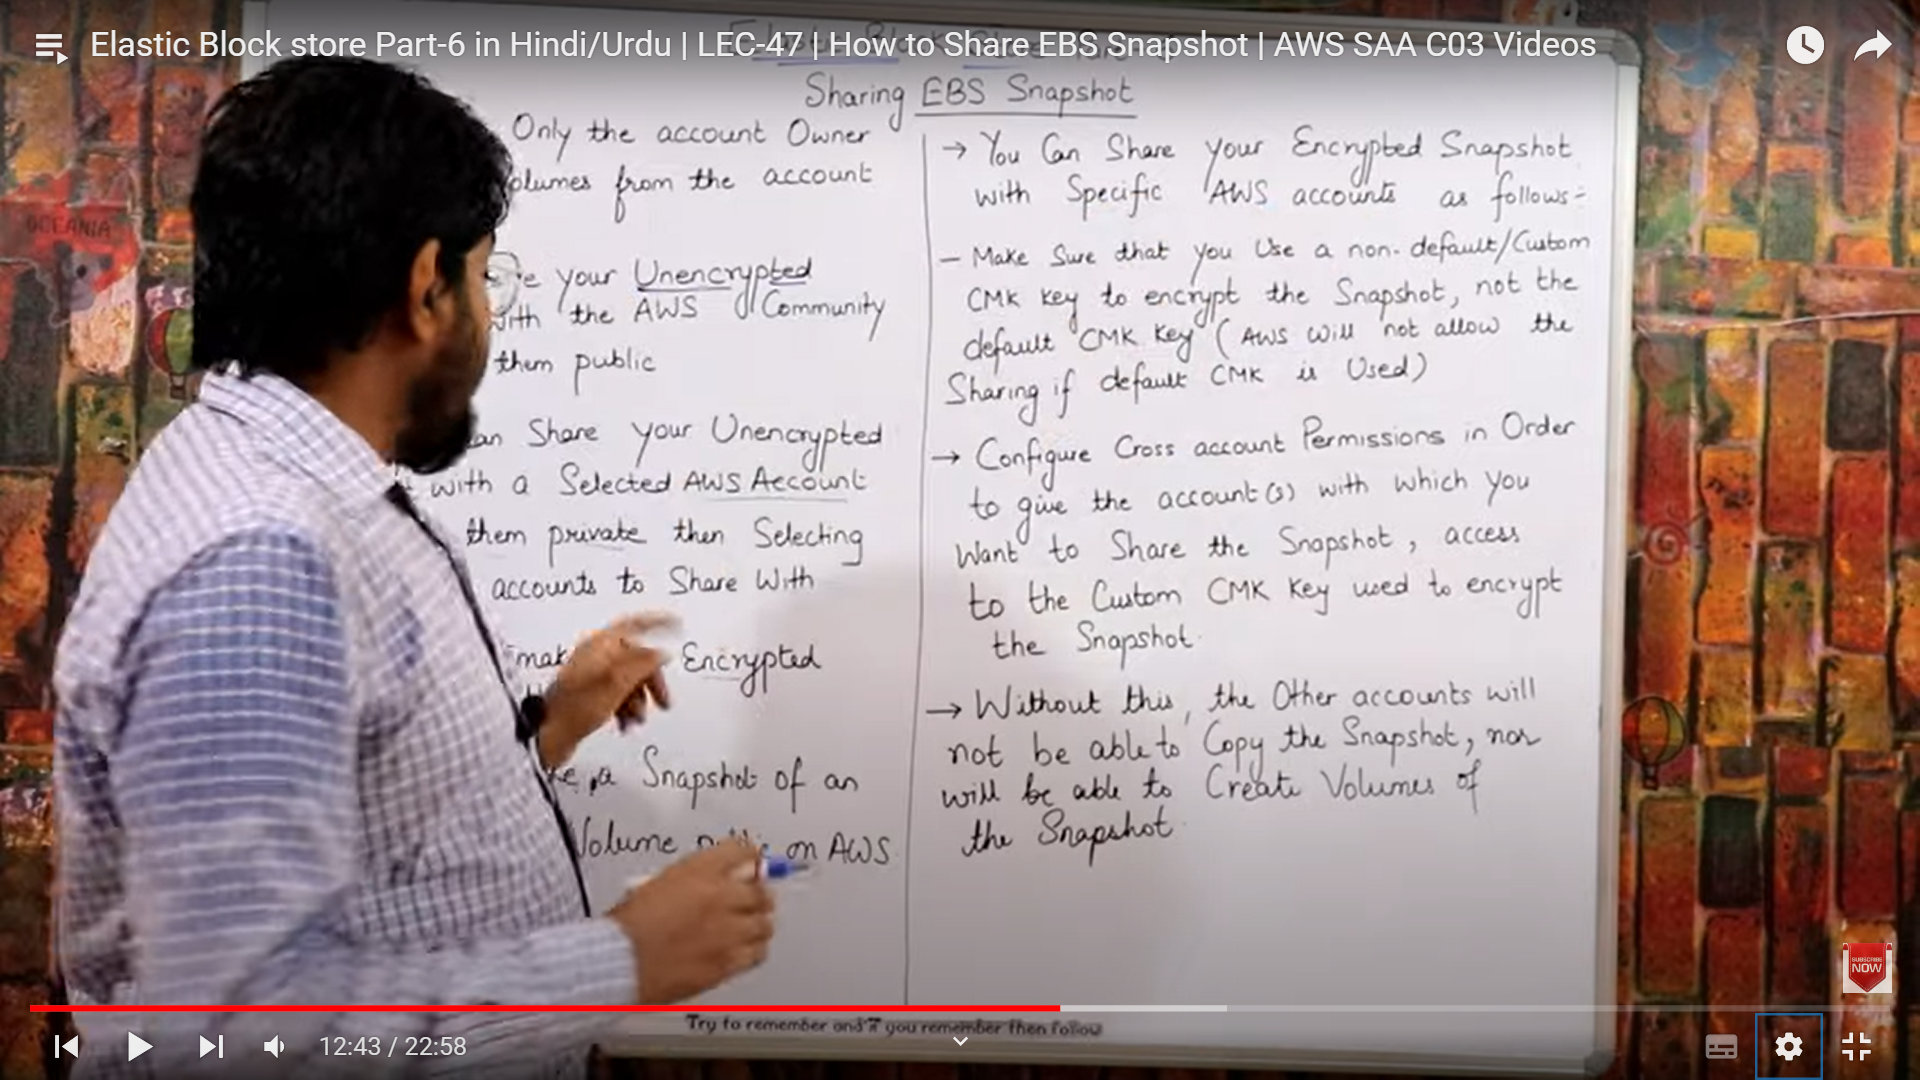 Elastic Block store Part-6 in Hindi/Urdu | LEC-47 | How to Share EBS Snapshot | AWS SAA C03 Videos
Sharing EBS Snapshot
Only the account Owner
from the account
your Unencrypted
with the AWS Community
them public
Share your Unencrypted
with a Selected AWS Account
them private then Selecting
accounts to Share With
Encrypted
a Snapshot of an
Volume on AWS
→ You Can Share your Encrypted Snapshot
with Specific AWS accounts as follows:-
- Make Sure that you Use a non-default/Custom
CMK Key to encrypt the Snapshot, not the
default CMK Key (AWS will not allow the
Sharing if default CMK is Used)
→ Configure Cross account Permissions in Order
to give the account(s) with which you
Want to Share the Snapshot, access
to the Custom CMK Key used to encrypt
the Snapshot.
→ Without this, the Other accounts will
not be able to Copy the Snapshot, nor
will be able to Create Volumes of
the Snapshot.
OCEANIA
SUBSCRIBE
NOW
Try to remember and if you remember then follow
12:43 / 22:58